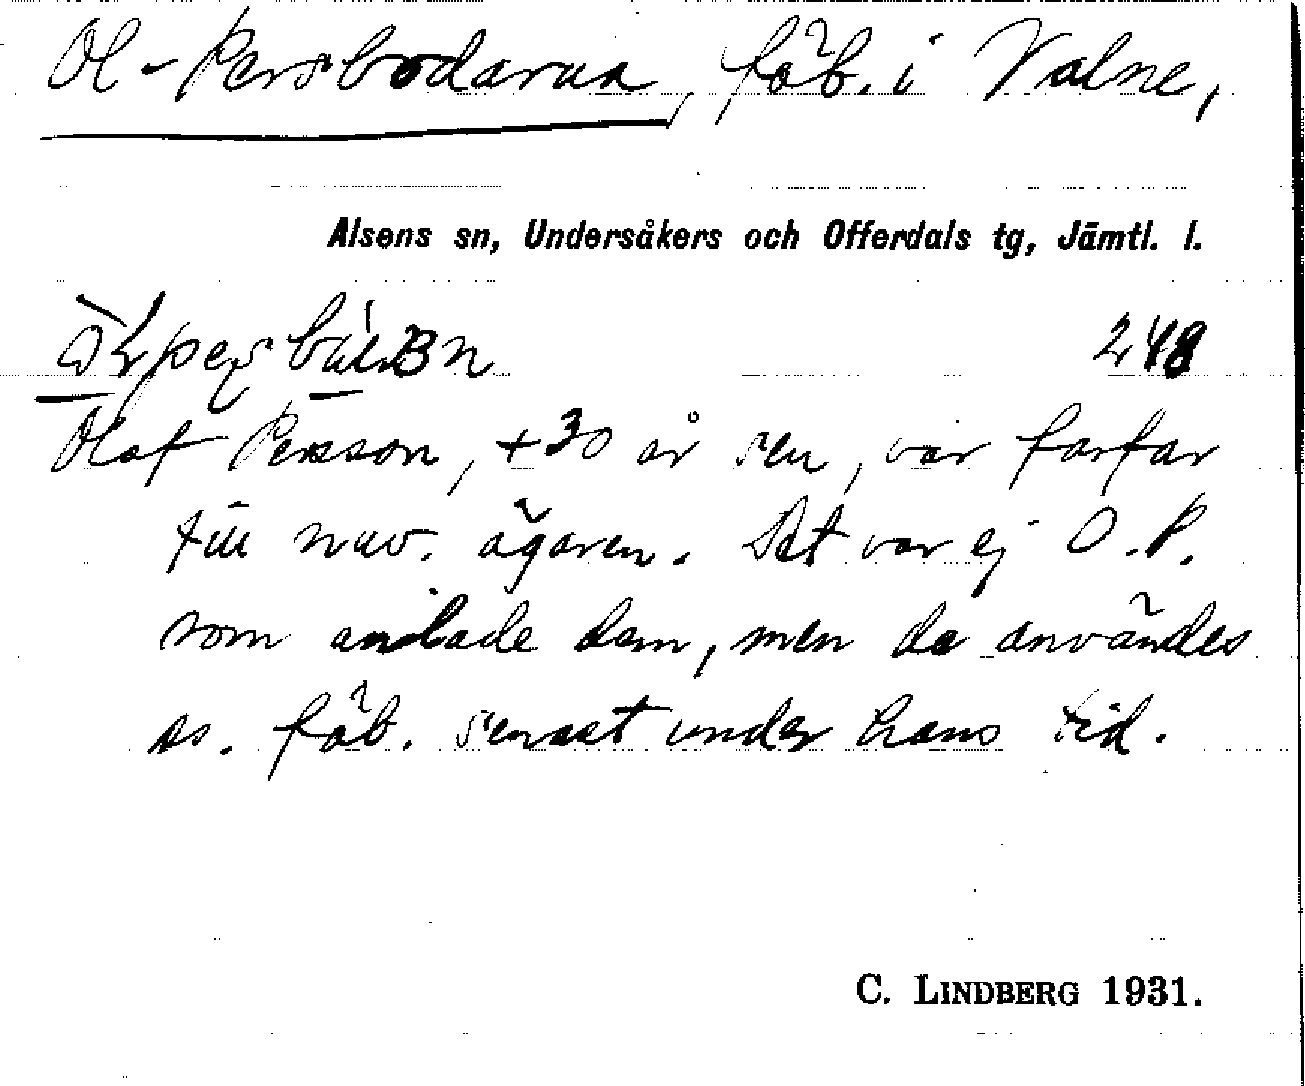 Ol-Persbodarna, fäb. i Valne,
Alsens sn, Undersåkers och Offerdals tg, Jämtl. l.
248
Olof Persson, + 30 år sen, var farfar
till nuv. ägaren. Det var ej O.P.
som anlade dem, men de användes
ss. fäb. senast under hans tid.
C. LINDBERG 1931.